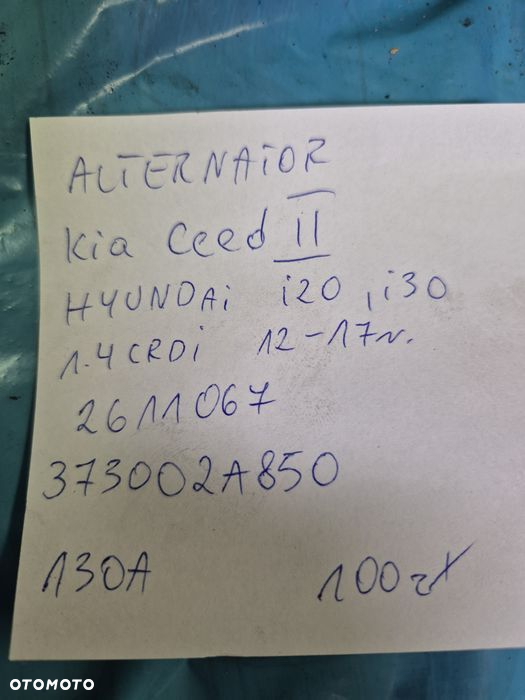 ALTERNATOR
Kia Ceed II
HYUNDAi i20, i30
1.4CRDi 12-17r.
2611067
373002A850
130A 100zł
OTOMOTO